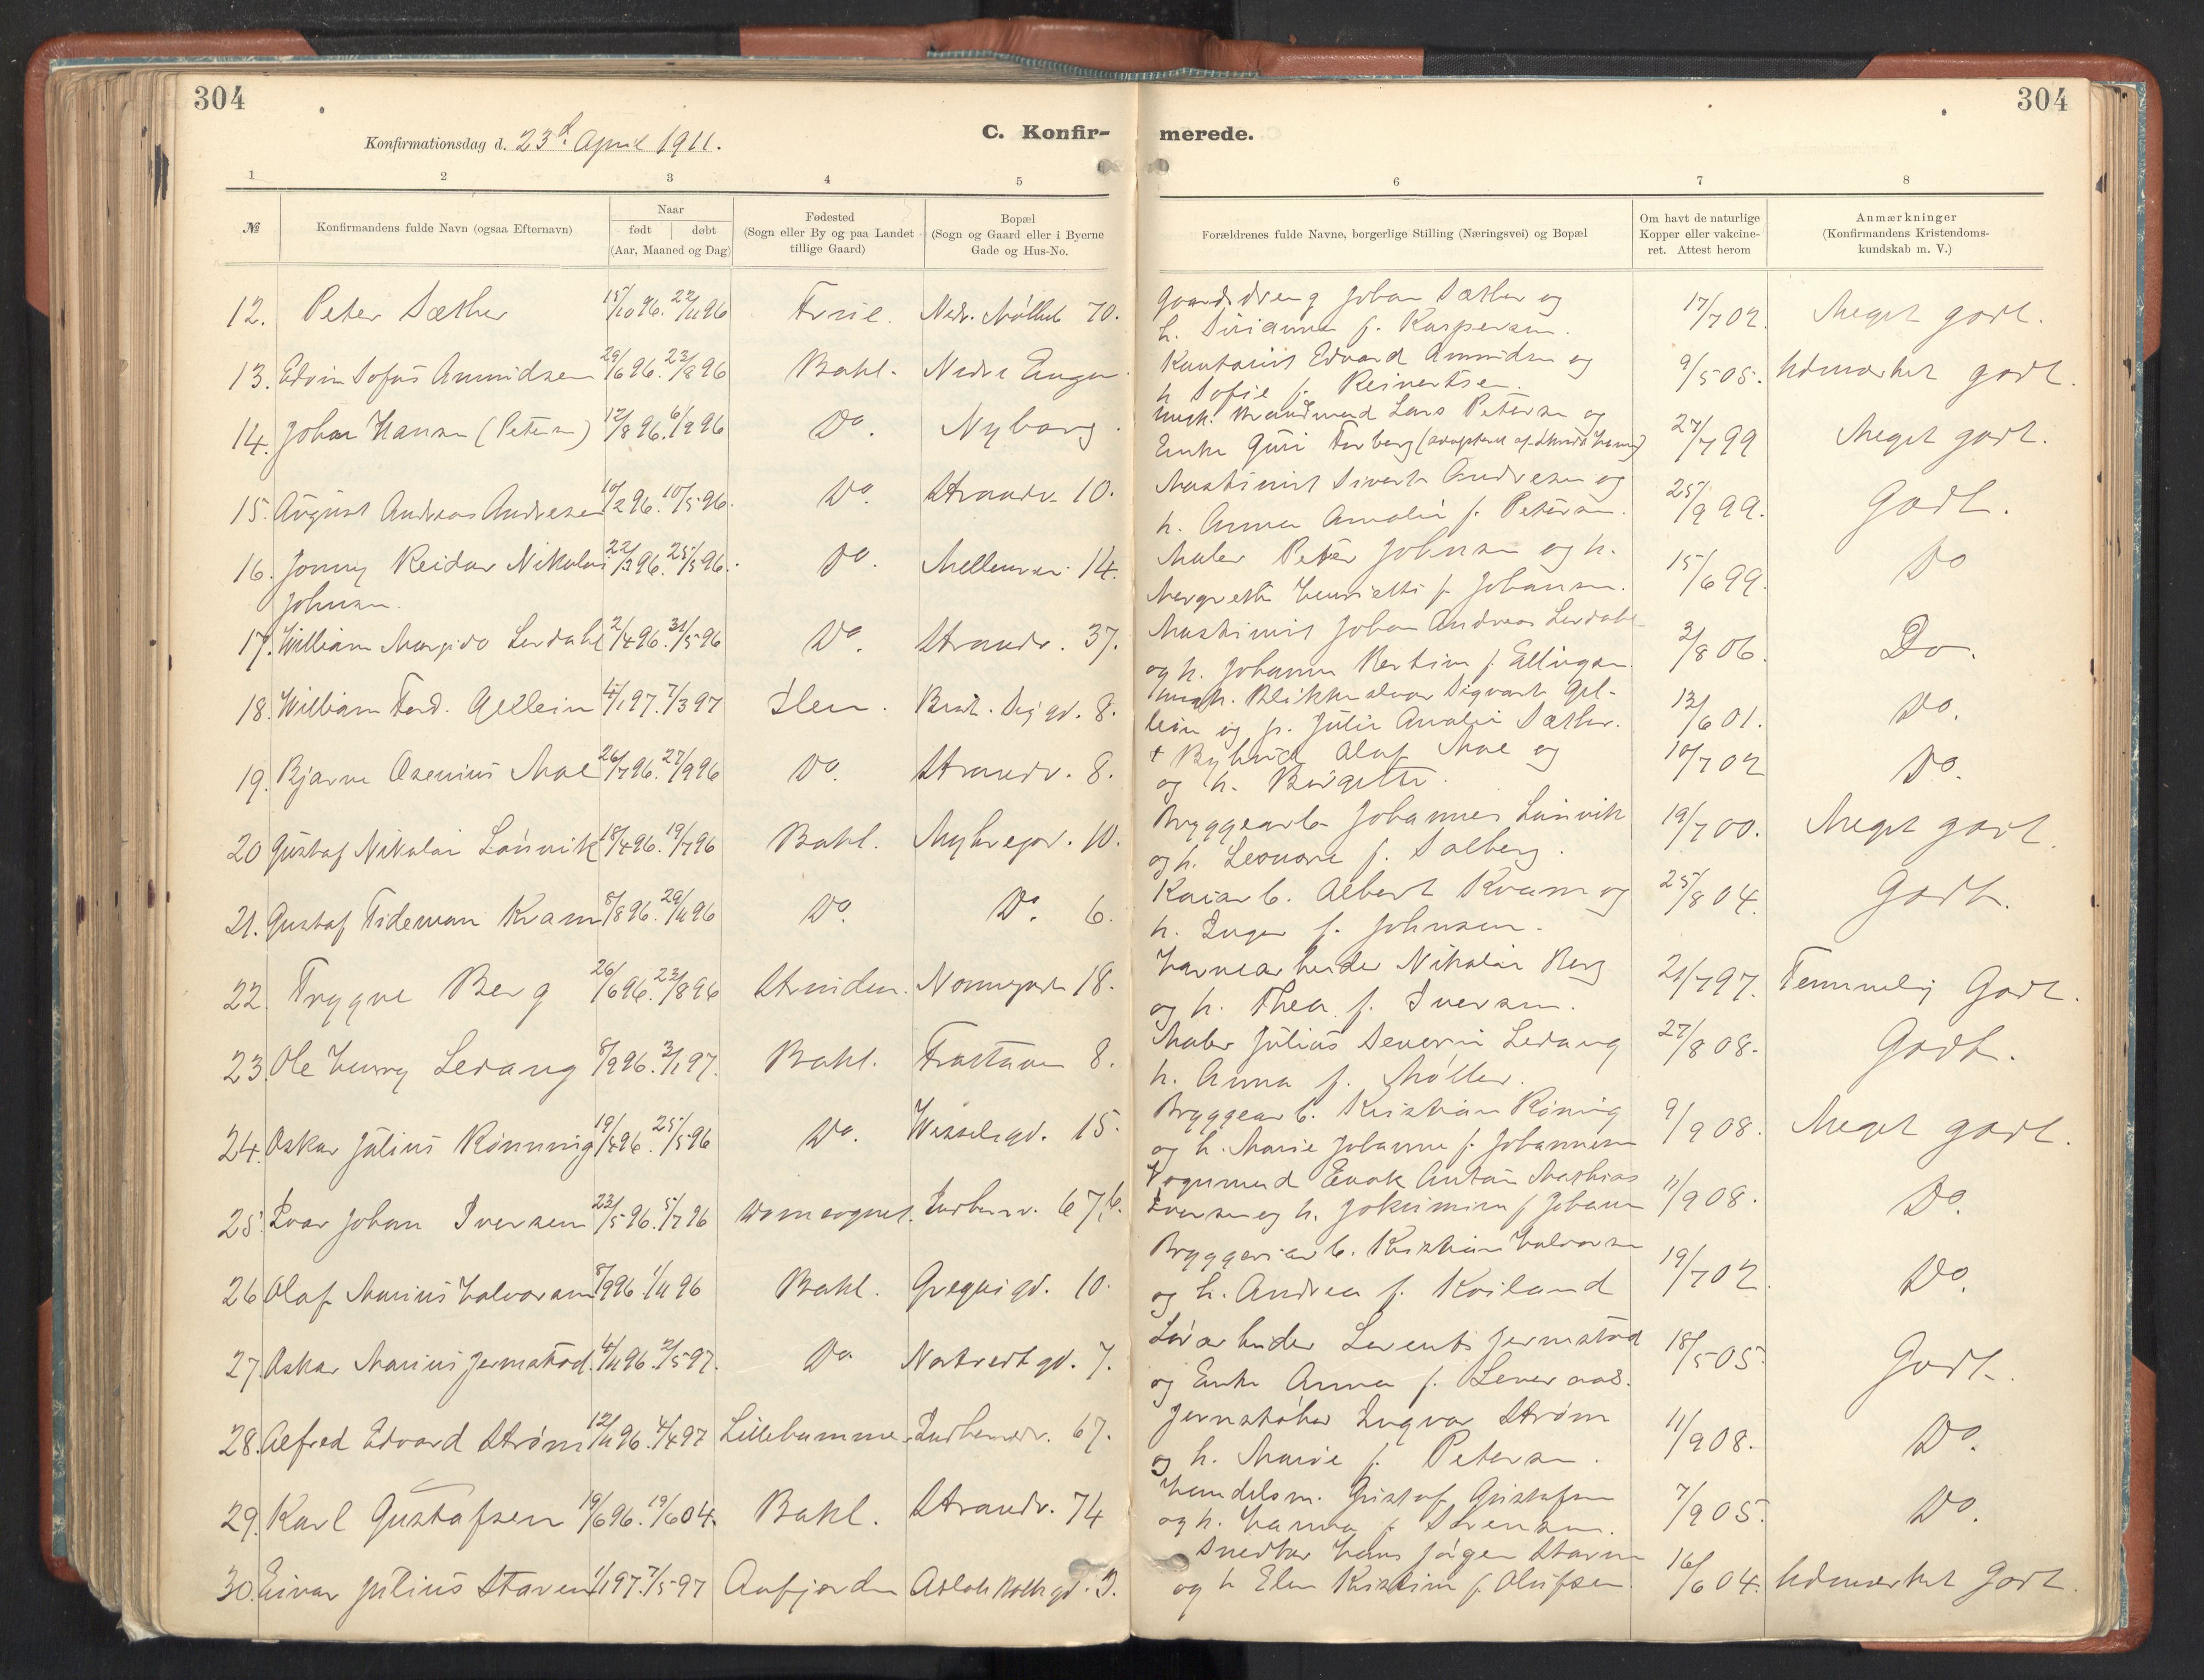 304
304
Konfirmationsdag d. 23d. April 1911.
C. Konfir-
merede.
1 2 3 4 5 6 7 8
№
Konfirmandens fulde Navn (ogsaa Efternavn)
Naar
født døbt
(Aar, Maaned og Dag)
Fødested
(Sogn eller By og paa Landet
tillige Gaard)
Bopæl
(Sogn og Gaard eller i Byerne
Gade og Hus-No.
Forældrenes fulde Navne, borgerlige Stilling (Næringsvei) og Bopæl
Om havt de naturlige
Kopper eller vakcine-
ret. Attest herom
Anmærkninger
(Konfirmandens Kristendoms-
kundskab m. V.)
12. Peter Sæther 15/10 96. 22/11 96 Nedr. Møllub 70. Gaardsdreng Johan Sæther og 17/7 02. Meget godt.
h. f. Kaspersen.
13. Edvin Sofus Amundsen 29/6 96. 23/8 96 Bakl. Nedre Enger Kontorist Edvard Amundsen og 9/5 05. Udmærket godt.
h. Sofie f. Reinertsen.
14. Johan Hansen (Petersen) 12/8 96. 6/9 96 Do. Nyborg. Lars Petersen og 27/7 99 Meget godt.
Enke Guri Forberg
15. August Andreas Andresen 10/2 96. 10/5 96. Do. Strandv. 10. Maskinist Sivert Andresen og 25/9 99. Godt.
h. Anna Amalie f. Petersen.
16. Jonny Reidar Nikolai 22/3 96. 25/5 96. Do. Mellemv. 14. Maler Peter Johnsen og h. 15/6 99. Do
Johnsen.
Margrethe Henriette f. Johansen.
17. William Margido Lerdahl 2/4 96. 31/5 96 Do. Strandv. 37. Maskinist Johan Andreas Lerdahl 3/8 06. Do.
og h. Johanna f. Ellingsen
18. William Ferd. Gellein 4/1 97. 7/3 97 Ilen. 8. Blikkenslager Sigvart Gel- 13/6 01. Do.
lein og p. Julie Amalie Sæther.
19. Bjarne Asenius Moe 26/7 96. 27/9 96 Do. Strandv. 8. † Olaf Moe og 10/7 02 Do.
og h. Birgitte.
20 Gustaf Nikolai Lånvik 18/4 96. 19/7 96 Bakl. Myhregd. 10. Bryggearb. Johannes 19/7 00. Meget godt.
og h. Leonora f. Solberg.
21. Gustaf Tideman Kvam 8/8 96. 29/11 96 Do. Do. 6. Kaiarb. Albert Kvam og 25/8 04. Godt.
h. Inger f. Johnsen.
22. Trygve Berg 26/6 96. 23/8 96 Strinden. Nonnegade 18. Havnearbeider Nikolai Berg 21/7 97. Temmelig Godt.
og h. Thea f. Iversen.
23. Ole Henry Ledang 8/9 96. 3/1 97. Bakl. 8. Maler Julius Severin Ledang 27/8 08. Godt.
h. Anna f. Möller.
24. Oskar Julius Rönning 19/4 96. 25/5 96 Do. Wesselsgd. 15 Bryggearb. Kristian Röning 9/9 08. Meget godt.
og h. Marie Johanne f. Johannesen
25. Ivar Johan Iversen 23/5 96. 5/7 96 Domsognet. Indherredv. 67, b. Vognmand Enok Anton Mathias 11/9 08. Do.
Iversen og h. Jokumine f. Johansen
26 Olaf Marius Halvorsen 8/9 96 1/11 96 Bakl. Gregusgd. 10. Bryggeriarb. Kristian Halvorsen 19/7 02. Do.
og h. Andrea f. Kviland
27. Oskar Marius Jermstad. 4/11 96. 2/5 97. Do. 7. Lørarbeider Lorents Jermstad 18/5 05. Godt.
og Enke Anna f. Leveraas.
28. Alfred Edvard Strøm 12/11 96. 4/4 97 Lillehammer. Indherredv. 67. Jernstøber Ingvar Strøm 11/9 08. Do.
og h. Marie f. Petersen.
29. Karl Gustafsen 19/6 96. 19/6 04. Bakl. Strandv. 74 Handelsm. Gustaf Gustafsen 7/9 05. Do.
og h. Hanna f. Sørensen.
30. Einar Julius Staven 1/1 97. 7/5 97 Aafjorden 3. Snedker Hans Jörgen Staven 16/6 04. Udmærket Godt.
og h Elen Kristine f. Olufsen.